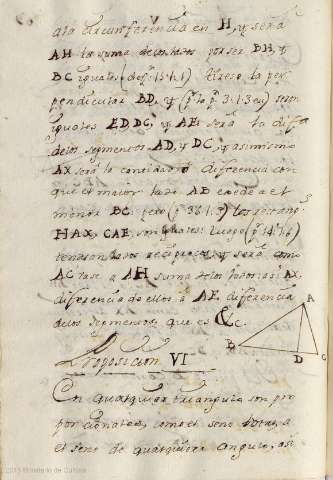 ala circunferencia en H, y será
AH la suma delos lados por ser BH, y
BC iguales (def. 15. l. 1) tirese la per
pendicular BD, y (p. la p. 3. l. 3. eu) seran
iguales ED, DC, y AE será la difª
delos segmentos AD, y DC, y asimismo
AX será la cantidad o diferencia con
que el maior lado AB excede al
menor BC. pero (p. 36. l. 3) los rectang.
HAX, CAE son iguales: luego (p. 14. l. 6)
tendran lados reciprocos, y será como
AC base a AH suma delos lados asi AX
diferencia de ellos a AE diferencia
delos segmentos, que es &c.
A
B
D
C
Proposicion VI
En qualquier triangulo son pro
porcionales, como el seno total a
el seno de qualquiera angulo, asi
2013 Ministerio de Cultura